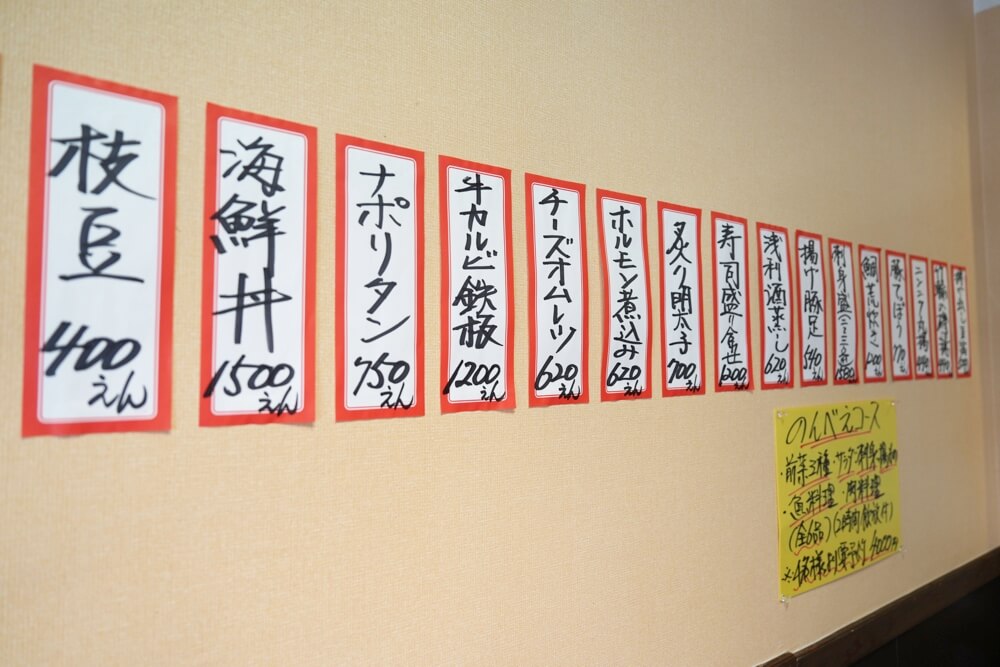 枝豆
400えん
海鮮丼
1500えん
ナポリタン
750えん
牛カルビ鉄板
1200えん
チーズオムレツ
620えん
ホルモン煮込み
620えん
炙り明太子
700えん
寿司盛り合せ
1200えん
浅利酒蒸し
620えん
揚げ豚足
540えん
刺身盛(二~三合)
鯛荒炊き
1200えん
豚てっぽう
770えん
ニンニク丸揚
のんべえコース
・前菜三種・サラダ・刺身・揚物
・魚料理・肉料理
(全6品)(2時間飲放付)
4000円